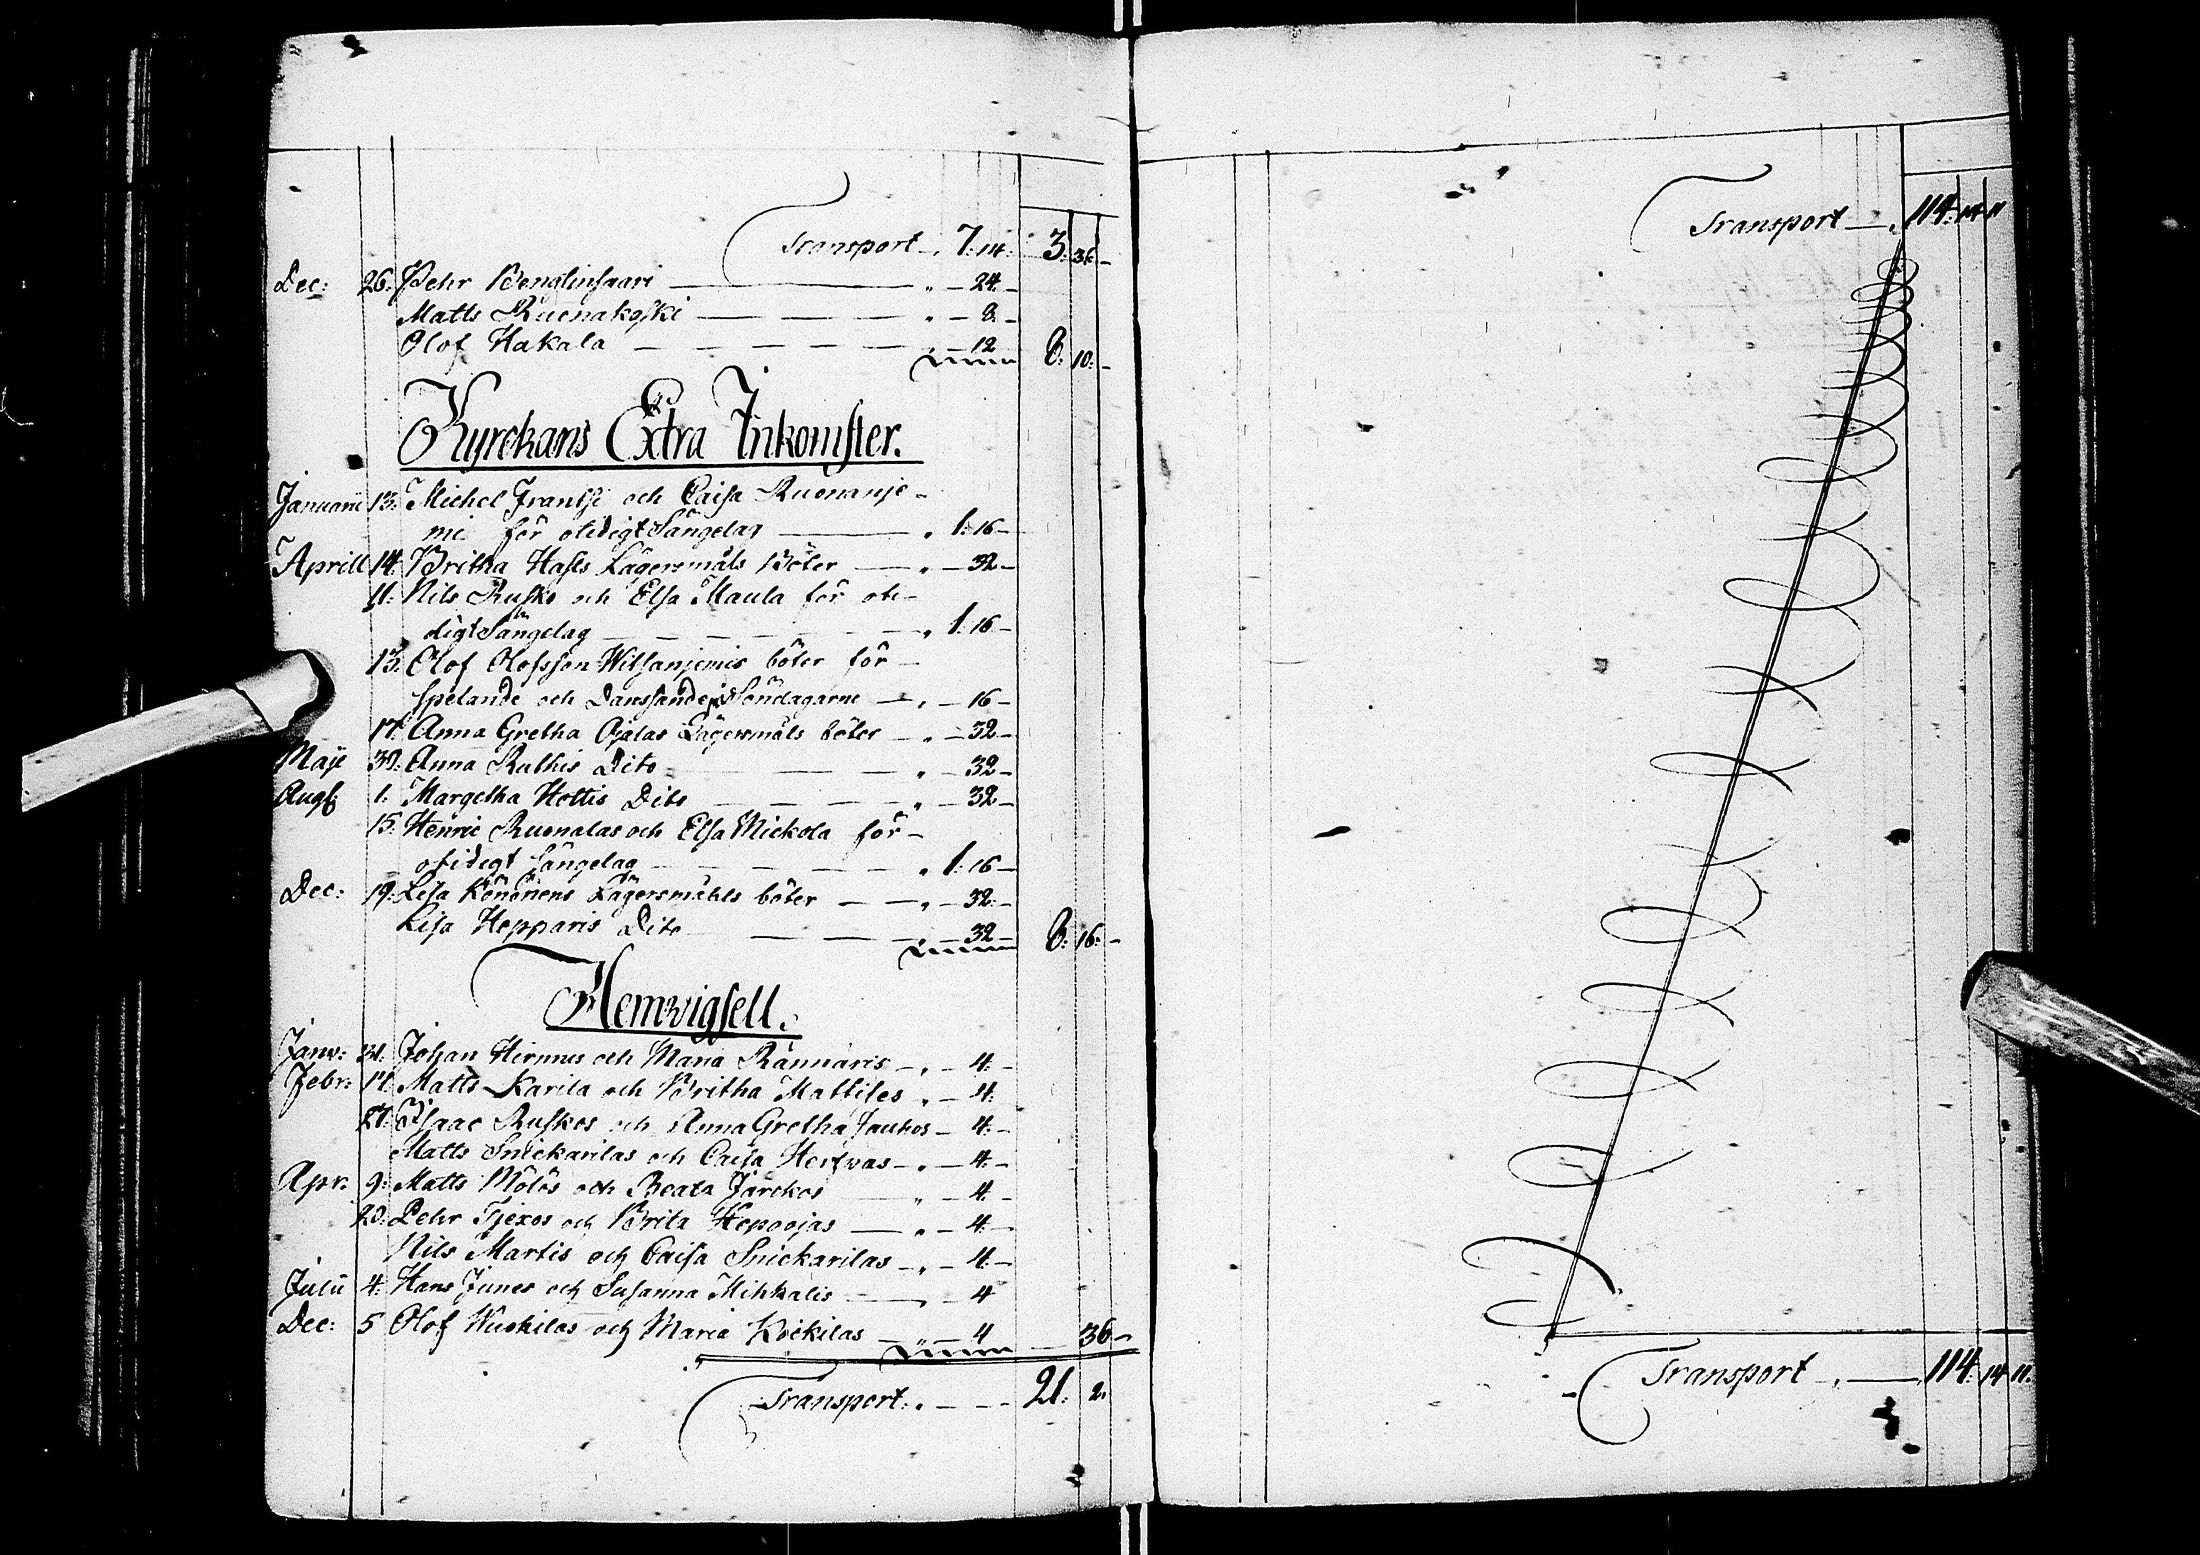 Transport 7: 14: 3: 36 -
Dec: 26. Pehr Benglinsaari " - 24 -
Matts Ruonakoski " - 8 -
Olof Hakala " - 12 8: 10: -
Kyrckans Extra Inkomster.
Januarii 13. Michel Frantsi och Caisa Ruonanje-
mi för otidigt Sängelag " 1: 16 -
Aprill 14. Britha Hasts Lägersmåls Böter " - 32 -
11. Nils Rusko och Elsa Maula för oti-
digt Sängelag " 1: 16 -
13. Olof Olofsson Wilsanjemis böter för
spelande och Danssande på Söndagarne " - 16 -
17. Anna Gretha Ojalas Lägersmåls böter " - 32 -
Maji 30. Anna Ruthis Dito " - 32 -
Aug: 1. Margetha Hottis Dito " - 32 -
15. Henric Ruonalas och Elsa Nickola för
otidigt Sängelag " 1: 16 -
Dec: 19. Lisa Könönens Lägersmåhls böter " - 32 -
Lisa Hepparis Dito - 32 - 8: 16: -
Hemwigsell.
Janu: 31. Johan Hirmus och Maria Rännäris " - 4: -
Febr: 17. Matts Karila och Britha Mattiles " - 4:
27. Isaac Ruskos och Anna Gretha Jauhos - 4: -
Matts Snickarilas och Caisa Herfwas " - 4: -
Apr: 9. Matts Mölös och Beata Jarckos " - 4. -
20. Pehr Tjexos och Brita Hepoojas " - 4. -
Nils Martis och Caisa Snickarilas " - 4. -
Julii 4. Hans Junes och Susanna Mihkalis " - 4
Dec: 5 Olof Wuokilas och Maria Kockilas " - 4 36 -
Transport " 21: 2.
Transport " 114: 14 11
Transport " 114: 14 11.